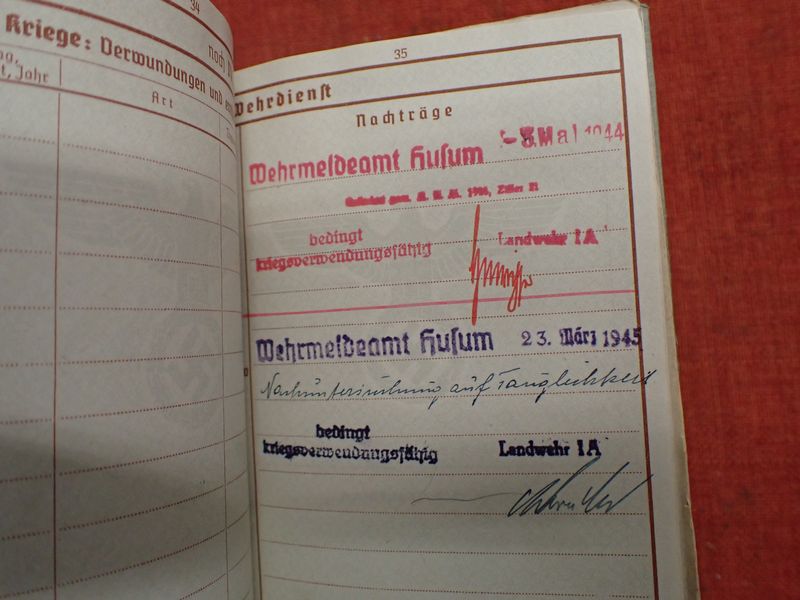 34
Kriege: Verwundungen und
t, Jahr
Art
35
Wehrdienst
Nachträge
Wehrmeldeamt Husum -5. Mai 1944
bedingt
kriegsverwendungsfähig Landwehr I A
Wehrmeldeamt Husum 23. März 1945
Nachuntersuchung auf Tauglichkeit
bedingt
kriegsverwendungsfähig Landwehr I A